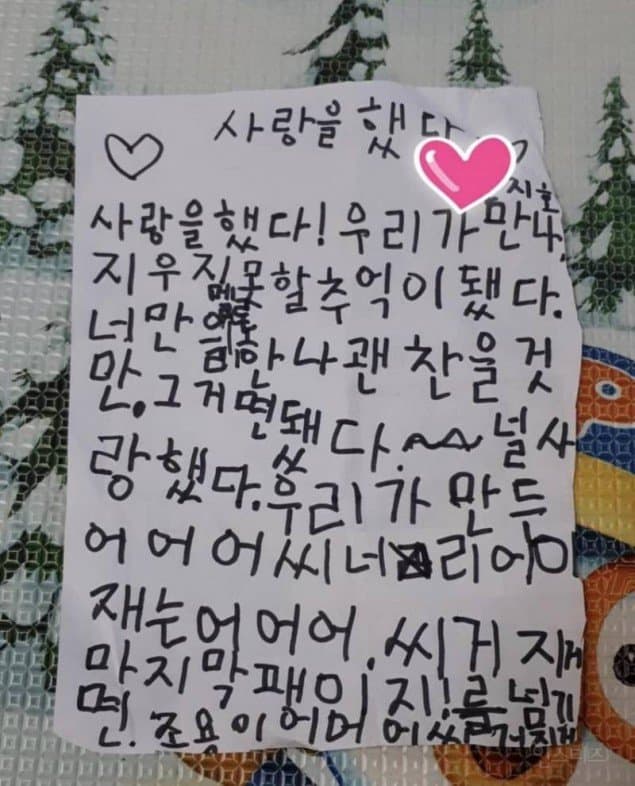 사랑을 했다
지호
사랑을 했다! 우리가 만나,
지우지 못할 추억이 됐다.
너만
만. 그거면 됐다. 널 사
랑 했다. 우리가 만든
어 어 어 씨너리 어 이
재는 어 어 어. 씨거지게
마지막 팽이지!를 넘기
면. 조용이 어어어
인스티즈